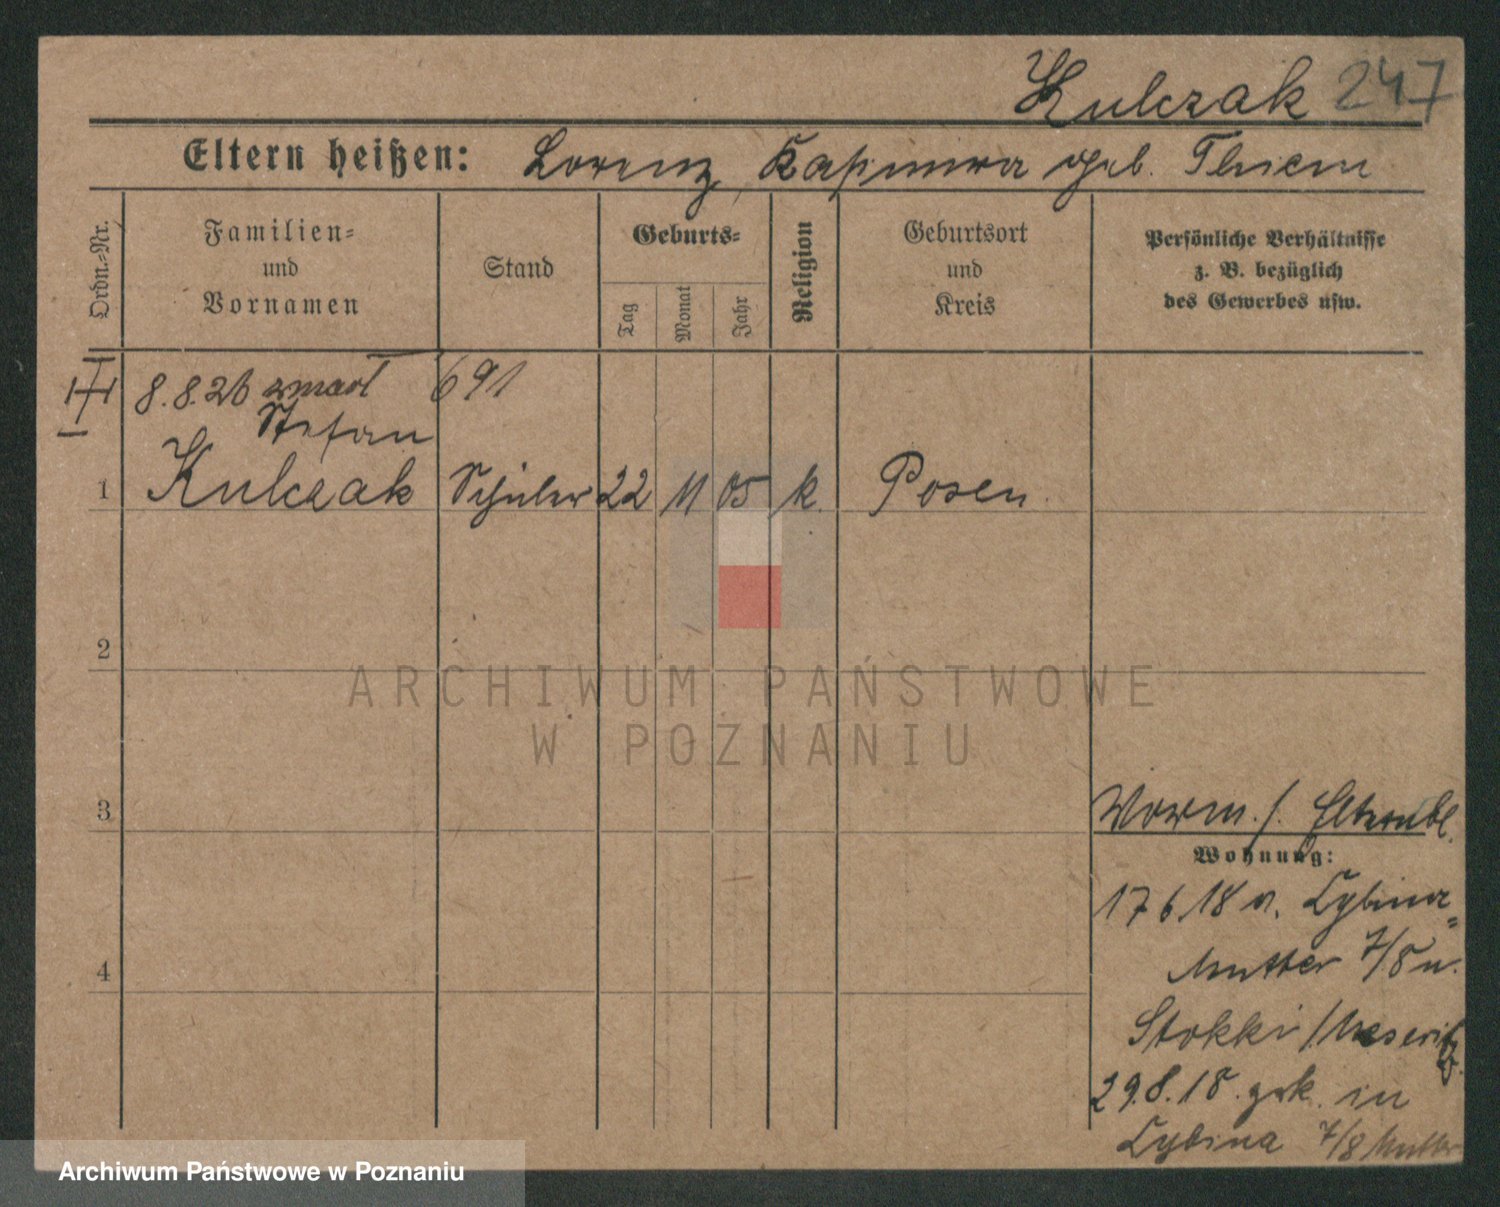 Kulczak 247
Eltern heißen: Lorenz, Kasimira geb. Thiem
Ordn.-Nr.
Familien-
und
Vornamen
Stand
Geburts-
Tag
Monat
Jahr
Religion
Geburtsort
und
Kreis
Persönliche Verhältnisse
z. B. bezüglich
des Gewerbes usw.
8.8.26 zmarł 691
Stefan
1 Kulczak Schüler 22 11 05 k. Posen
2
3
4
ARCHIWUM PAŃSTWOWE
W POZNANIU
Vorm. s. Elternbl.
Wohnung:
17 6 18 n. Cybina-
Mutter 7/8 n.
Stokki / Meseritz
29.8.18. zrk. in
Cybina 7/8 Mutter
Archiwum Państwowe w Poznaniu